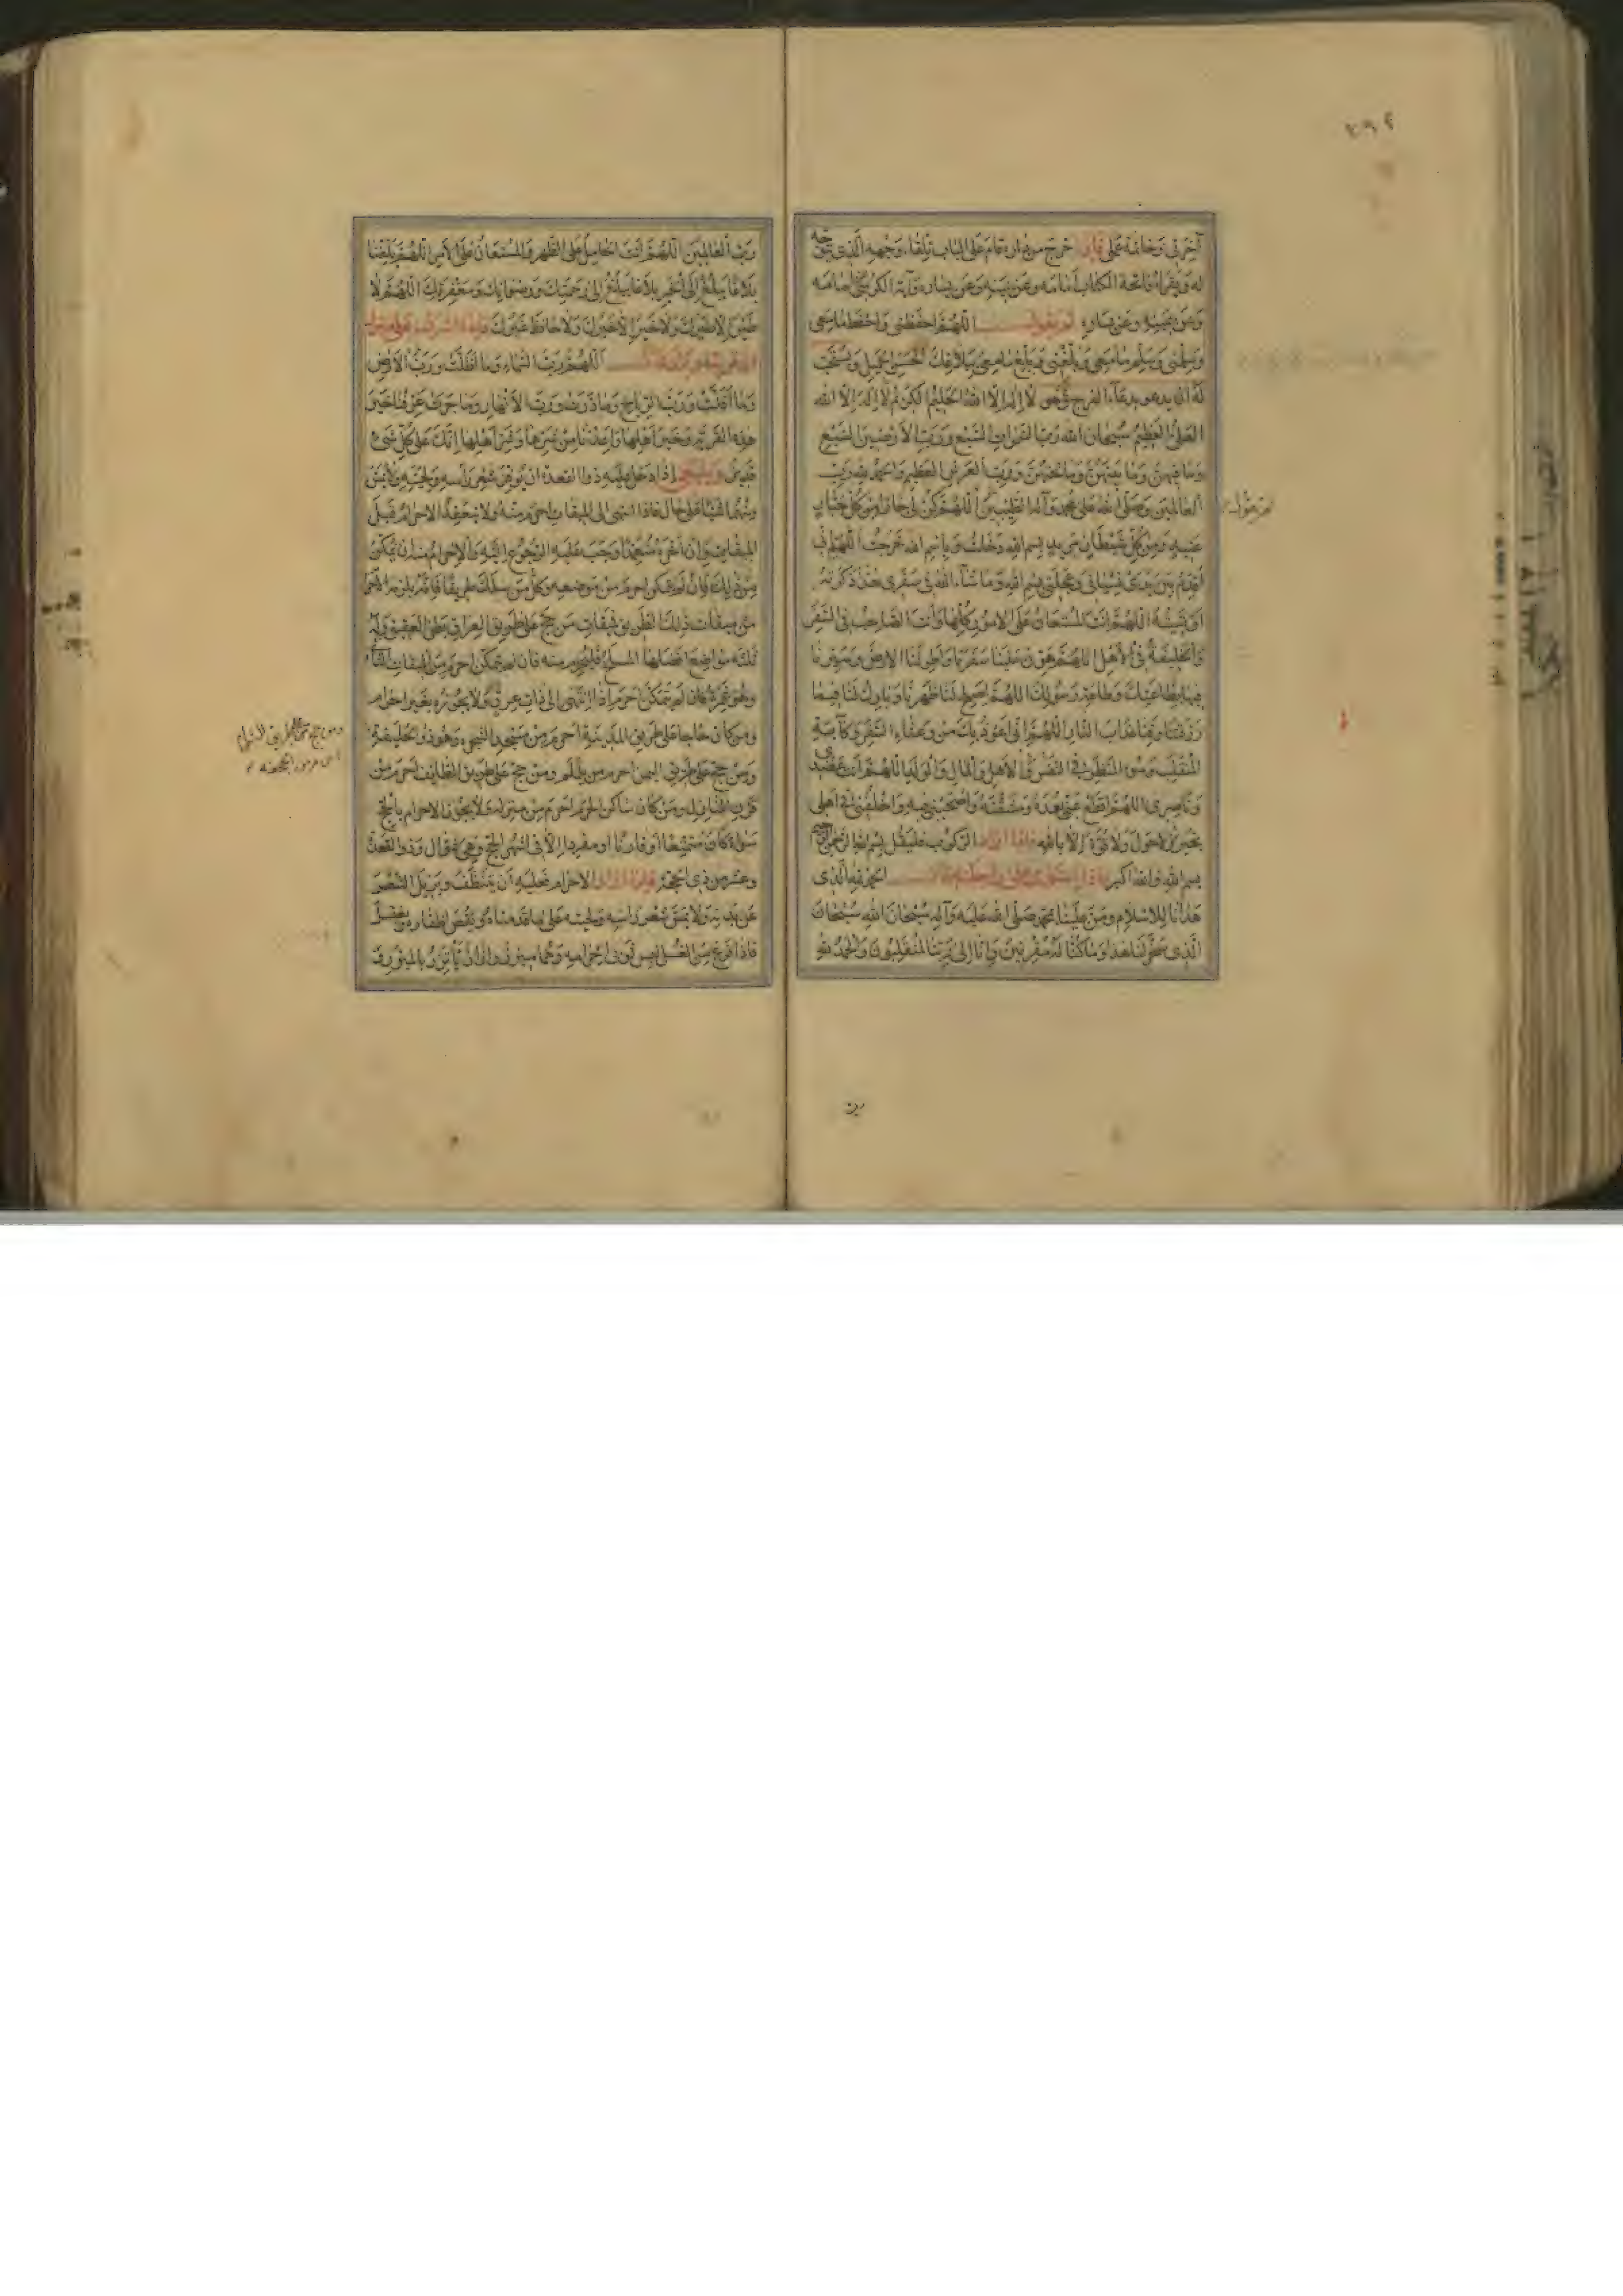 آخرتي وخاتمة عملي فإذا خرج من داره قام على الباب تلقاء وجهه الذي يتوجه
له ويقرأ فاتحة الكتاب أمامه وعن يمينه وعن يساره وآية الكرسي أمامه
وعن يمينه وعن يساره ثم يقول اللهم احفظني واحفظ ما معي
وسلمني وسلم ما معي وبلغني وبلغ ما معي ببلاغك الحسن الجميل ويستحب
له أن يدعو بدعاء الفرج وهو لا إله إلا الله الحليم الكريم لا إله إلا الله
العلي العظيم سبحان الله رب السموات السبع ورب الأرضين السبع
وما فيهن وما بينهن وما تحتهن ورب العرش العظيم والحمد لله رب
العالمين وصلى الله على محمد وآله الطيبين اللهم كن لي جارا من كل جبار
ثم يقول
عنيد ومن كل شيطان مريد بسم الله دخلت وباسم الله خرجت اللهم إني
أقدم بين يدي نسياني وعجلتي بسم الله وما شاء الله في سفري هذا ذكرته
أو نسيته اللهم أنت المستعان على الأمور كلها وأنت الصاحب في السفر
والخليفة في الأهل اللهم هون علينا سفرنا واطو لنا الأرض وسيرنا
فيها بطاعتك وطاعة رسولك اللهم أصلح لنا ظهرنا وبارك لنا فيما
رزقتنا وقنا عذاب النار اللهم إني أعوذ بك من وعثاء السفر وكآبة
المنقلب وسوء المنظر في النفس في الأهل والمال والولد اللهم أنت عضدي
وناصري اللهم اقطع عني بعده ومشقته واصحبني فيه واخلفني في أهلي
بخير لا حول ولا قوة إلا بالله فإذا أراد الركوب فليقل بسم الله الرحمن الرحيم
بسم الله والله أكبر فإذا استوى على راحلته قال الحمد لله الذي
هدانا للإسلام ومن علينا بمحمد صلى الله عليه وآله سبحان الله سبحان
الذي سخر لنا هذا وما كنا له مقرنين وإنا إلى ربنا لمنقلبون والحمد لله
رب العالمين اللهم أنت الحامل على الظهر والمستعان على الأمر اللهم بلغنا
بلاغا يبلغ إلى الخير بلاغا يبلغ إلى رحمتك ورضوانك ومغفرتك اللهم لا
طير إلا طيرك ولا خير إلا خيرك ولا حافظ غيرك وإذا أشرف على
اللهم رب السماء وما أظلت ورب الأرض
وما أقلت ورب الرياح وما ذرت ورب الأنهار وما جرت عرفنا خير
هذه القرية وخير أهلها وأعذنا من شرها وشر أهلها إنك على كل شيء
قدير وينبغي إذا دخل عليه ذو القعدة أن يوفر شعر رأسه ولحيته ولا يمس
منهما شيئا على حال فإذا انتهى إلى الميقات أحرم منه ولا ينعقد الإحرام قبل
الميقات وإن أخره متعمدا وجب عليه الرجوع إليه والإحرام منه إن تمكن
من ذلك فإن لم يتمكن أحرم من موضعه وكل من سلك طريقا فإنه يلزمه الإحرام
من ميقات ذلك الطريق فميقات من حج على طريق العراق بطن العقيق وله
ثلثة مواضع أفضلها المسلخ فليحرم منه فإن لم يتمكن أحرم من الميقات الثاني
وهو غمرة فإن لم يتمكن أحرم إذا انتهى إلى ذات عرق ولا يجوزه بغير إحرام
ومن كان حاجا على طريق المدينة أحرم من مسجد الشجرة وهو ذو الحليفة
ومن حج على طريق الشام
أحرم من الجحفة
ومن حج على طريق اليمن أحرم من يلملم ومن حج على طريق الطائف أحرم من
قرن المنازل ومن كان ساكن الحرم أحرم من منزله ولا يجوز الإحرام بالحج
سواء كان متمتعا أو قارنا أو مفردا إلا في أشهر الحج وهي شوال وذو القعدة
وعشر من ذي الحجة فإذا أراد الإحرام فعليه أن يتنظف ويزيل الشعر
عن بدنه ولا يمس شعر رأسه ولحيته على ما قدمناه ويقص أظفاره ويغتسل
فإذا فرغ من الغسل لبس ثوبي إحرامه وهما ميزر وإزار يأتزر بالميزر